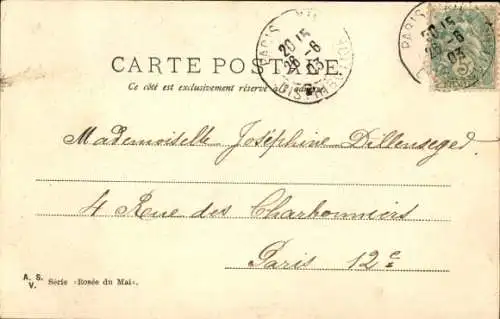 PARIS
20 15
26 - 6
03
DISTRIBUTION
PARIS
20 15
26 - 6
03
5
CARTE POSTALE
Ce côté est exclusivement réservé à l'adresse
Mademoiselle Joséphine Dillenseged.
4 Rue des Charbonniers
Paris 12e
A. S.
V. Série «Rosée du Mai».